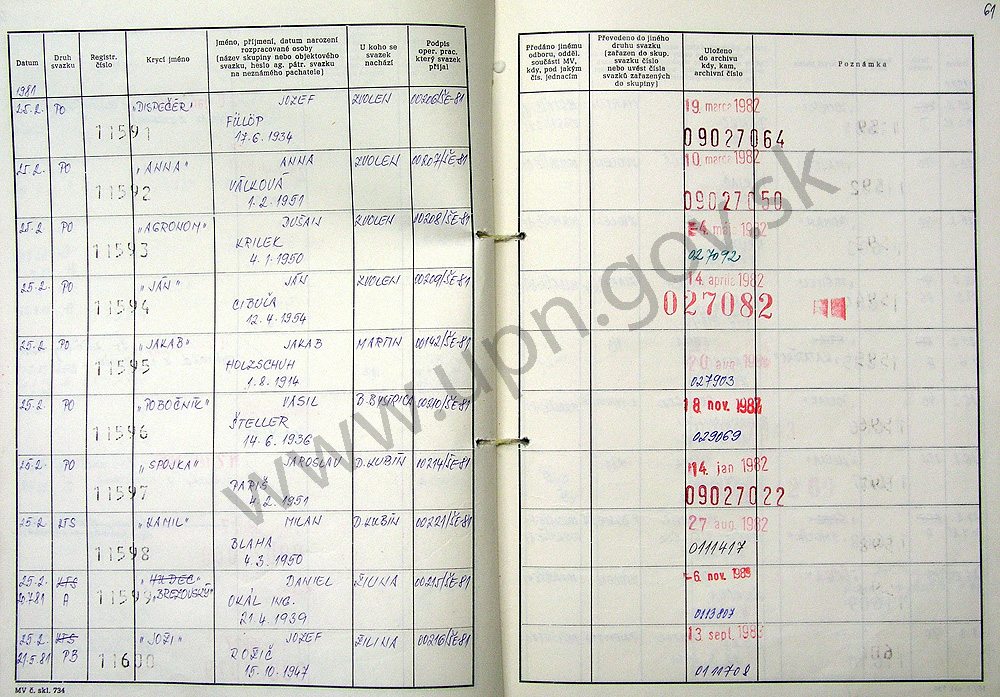 61
Datum
Druh svazku
Registr. číslo
Krycí jméno
Jméno, příjmení, datum narození
rozpracované osoby
(název skupiny nebo objektového
svazku, heslo ag. pátr. svazku
na neznámého pachatele)
U koho se
svazek
nachází
Podpis
oper. prac.
který svazek
přijal
Předáno jinému
odboru, odděl.
součásti MV,
kdy, pod jakým
čís. jednacím
Převedeno do jiného
druhu svazku
(zařazen do skup.
svazku číslo
nebo uvést čísla
svazků zařazených
do skupiny)
Uloženo
do archivu
kdy, kam,
archivní číslo
Poznámka
1981
25.2. PO „DISPEČER" JOZEF ZVOLEN 00206/ŠE-81 19. marca 1982
11591 FÜLÖP 09027064
17.6.1934
25.2. PO „ANNA" ANNA ZVOLEN 00207/ŠE-81 10. marca 1982
11592 VÁLKOVÁ 09027050
1.2.1951
25.2 PO „AGRONOM" DUŠAN ZVOLEN 00208/ŠE-81 -4. máj 1982
11593 KRILEK 027092
4.1.1950
25.2. PO „JÁN" JÁN ZVOLEN 00209/ŠE-81 14. apríla 1982
11594 CIBUĽA 027082
12.4.1954
25.2. PO „JAKAB" JAKAB MARTIN 00142/ŠE-81 20 aug
11595 HOLZSCHUH 027903
1.8.1914
25.2 PO „POBOČNÍK" VASIL B.BYSTRICA 00210/ŠE-81 18. nov.
11596 ŠTELLER 029069
14.6.1936
25.2. PO „SPOJKA" JAROSLAV D.KUBÍN 00214/ŠE-81 14. jan 1982
11597 PARIŠ 09027022
4.2.1951
25.2 KTS „KAMIL" MILAN D.KUBÍN 00221/ŠE-81 27 aug. 1982
11598 BLAHA 0111417
4.3.1950
25.2. KTS DANIEL ŽILINA 00215/ŠE-81 -6. nov. 1989
20.7.81 A 11599 „BREZOVSKÝ" OKÁL ING. 0113807
21.4.1939
25.2. KTS „JOŽI" JOZEF ŽILINA 00216/ŠE-81 13 sept.
21.5.81 PB 11600 ROŽIČ 0111708
15.10.1947
MV č. skl. 734
www.upn.gov.sk